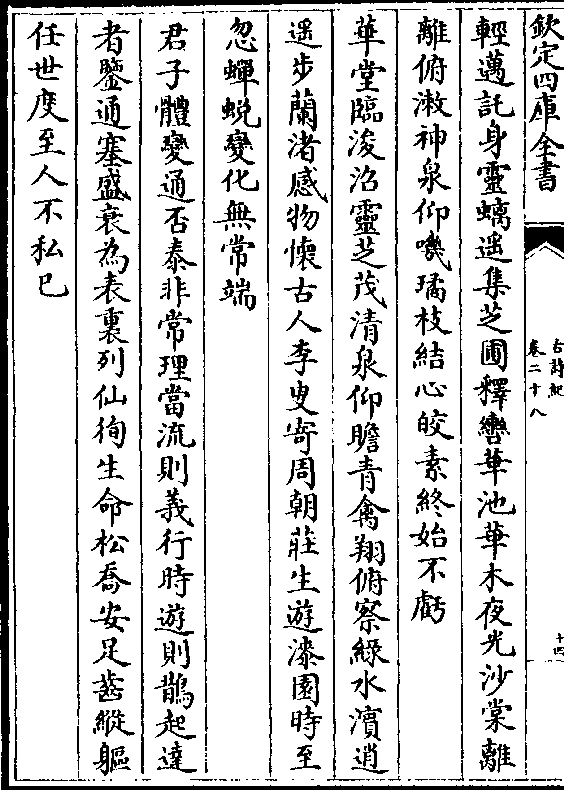 欽定四庫全書
古詩紀
卷二十八
十四
輕邁託身靈螭遥集芝圃釋轡華池華木夜光沙棠離
離俯漱神泉仰嘰璚枝結心皎素終始不虧
華堂臨浚沼靈芝茂清泉仰瞻青禽翔俯察緑水濱逍
遥步蘭渚感物懷古人李叟寄周朝莊生遊漆園時至
忽蟬蜕變化無常端
君子體變通否泰非常理當流則義行時遊則鵲起達
者鑒通塞盛衰為表裏列仙徇生命松喬安足齒縱軀
任世度至人不私已